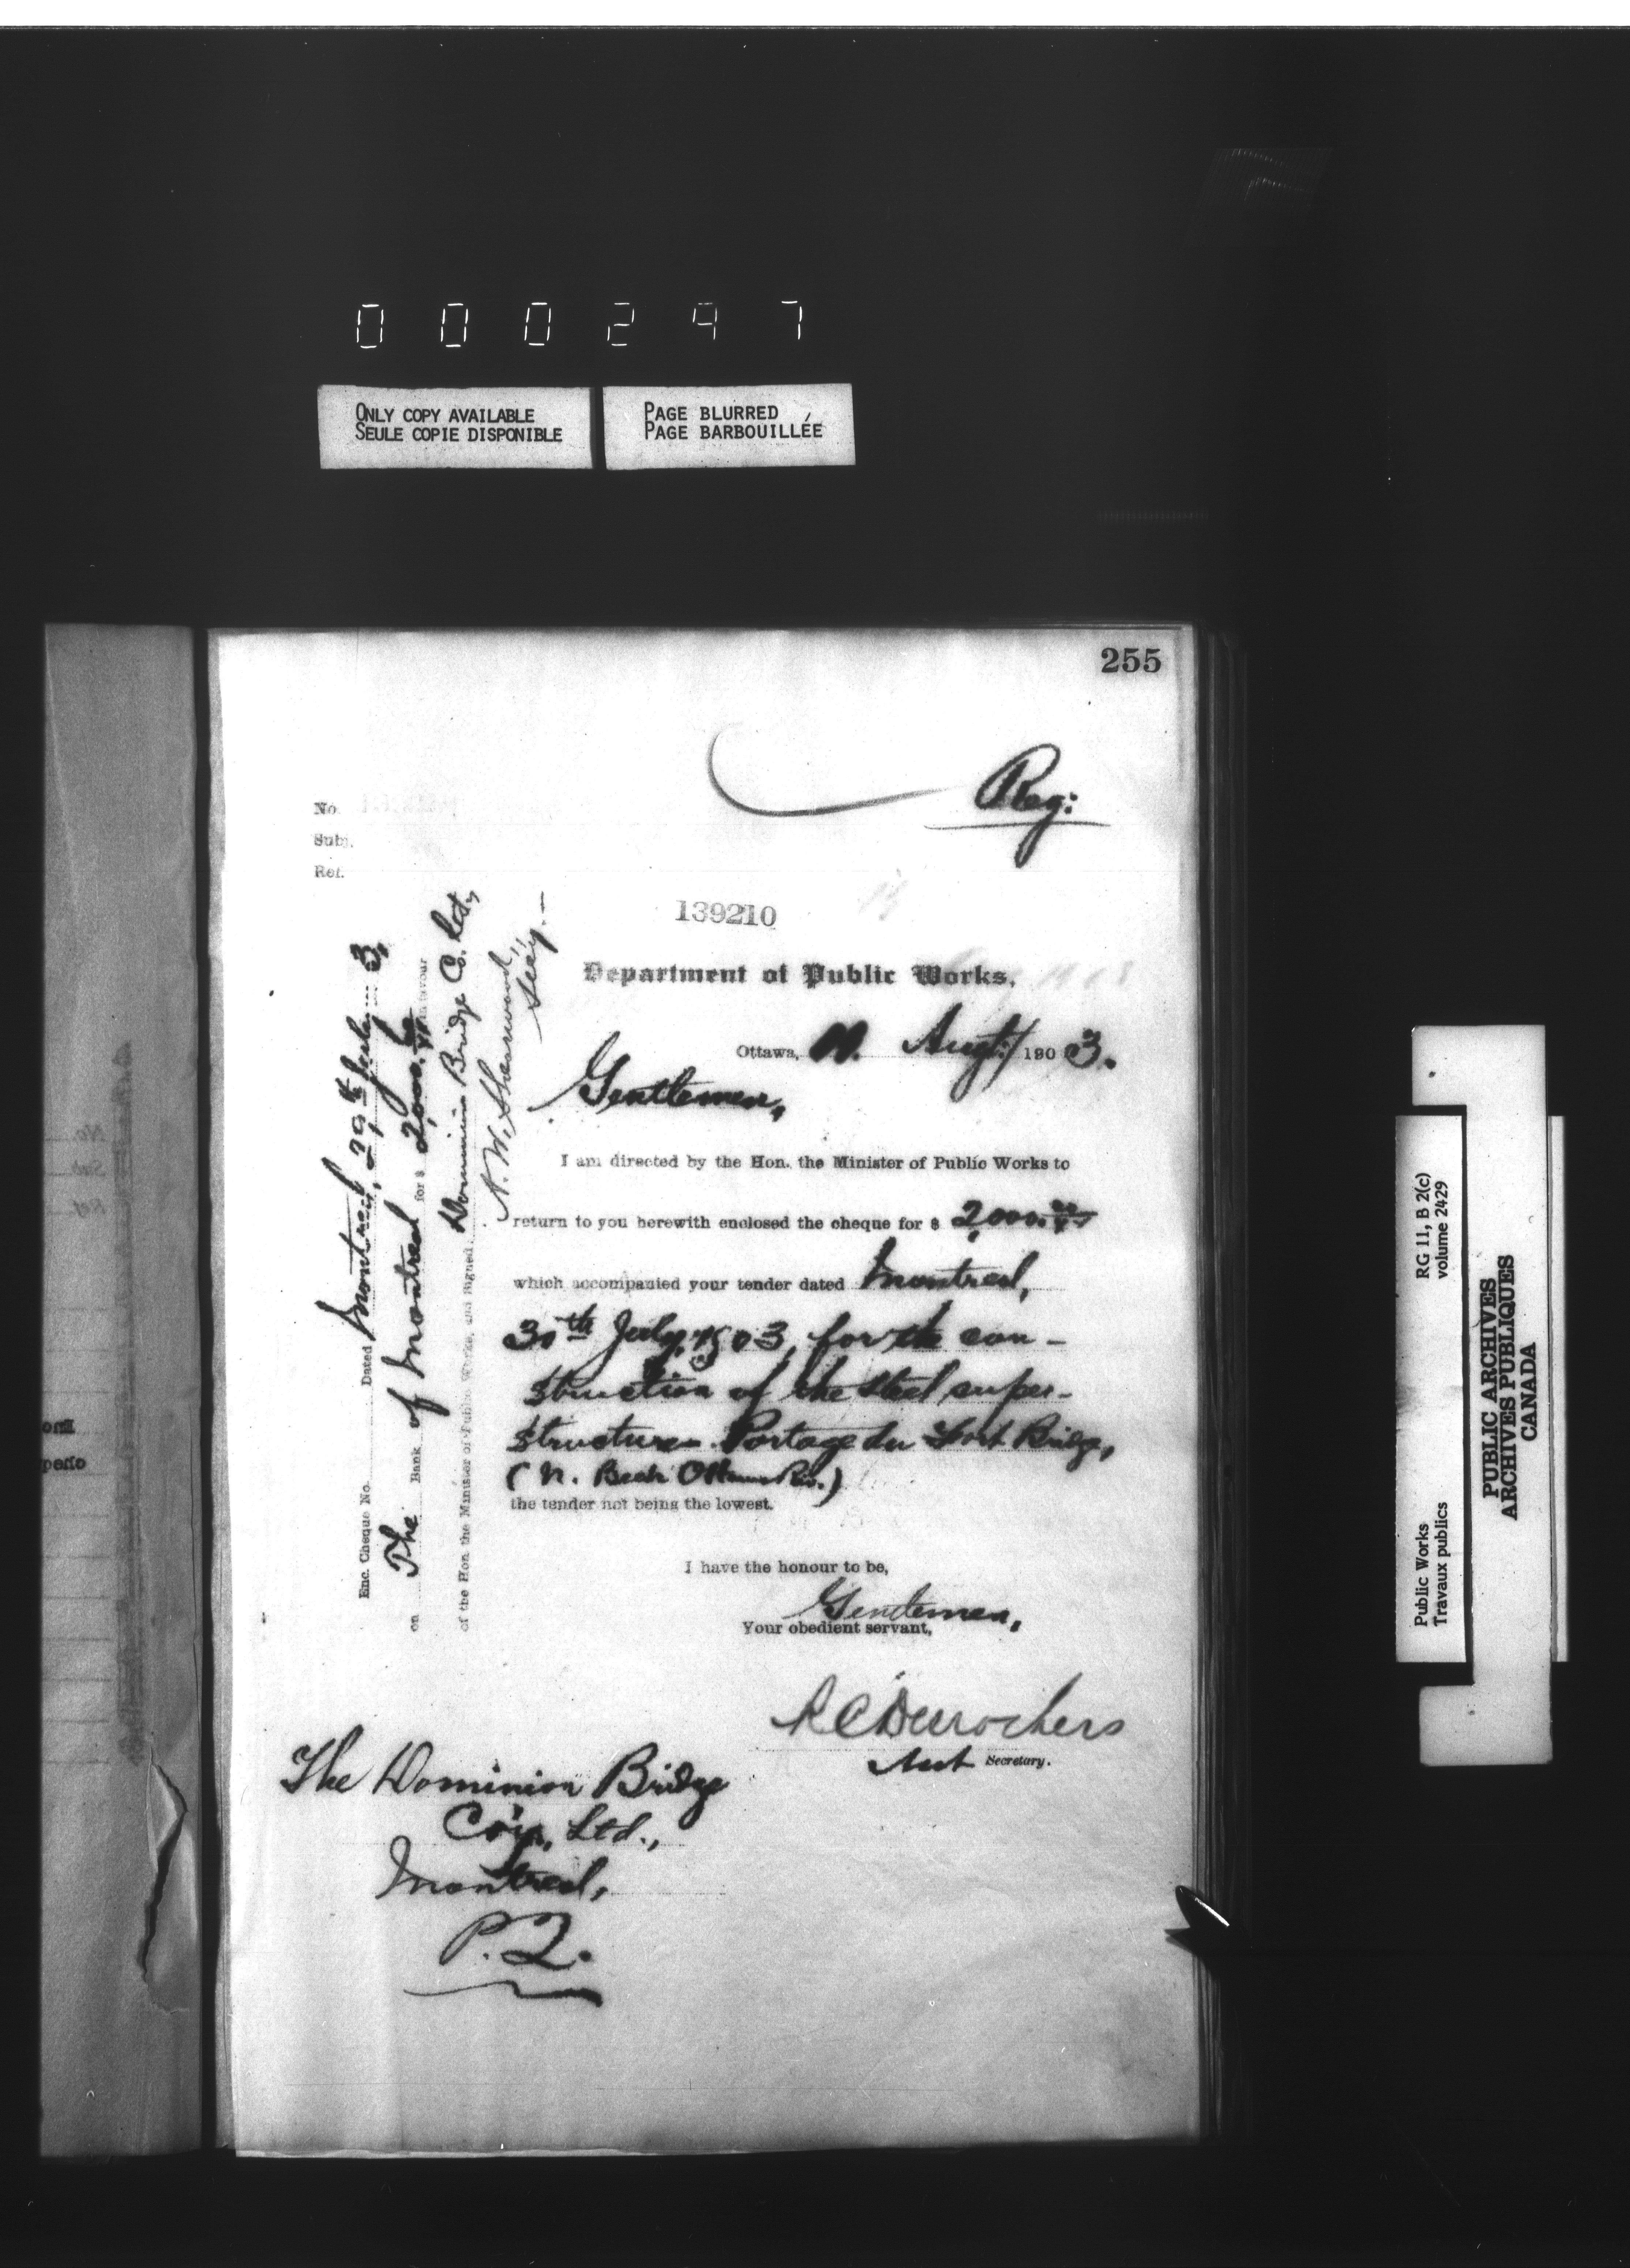 000297
ONLY COPY AVAILABLE
SEULE COPIE DISPONIBLE
PAGE BLURRED
PAGE BARBOUILLÉE
255
Reg:
No.
Subj.
Ref.
139210
Department of Public Works.
Ottawa, 11. Augt/ 1903.
Gentlemen,
I am directed by the Hon. the Minister of Public Works to
return to you herewith enclosed the cheque for $ 2,000.
which accompanied your tender dated Montreal,
30th July, 1903, for the con-
struction of the steel super-
structure Portage du Fort Bridge,
(N. Ottawa Riv.)
the tender not being the lowest.
I have the honour to be,
Gentlemen,
Your obedient servant,
R C Desrochers
Asst Secretary.
The Dominion Bridge
Co'y, Ltd.,
Montreal,
P.Q.
Enc. Cheque No. Dated Montreal, 29th July 3,
on The Bank of Montreal for $ 2,000. in favour
of the Hon. the Minister of Public Works, and signed. Dominion Bridge Co. Ltd.,
Sherwood,
Secy.—
Public Works
Travaux publics
RG 11, B 2(c)
volume 2429
PUBLIC ARCHIVES
ARCHIVES PUBLIQUES
CANADA